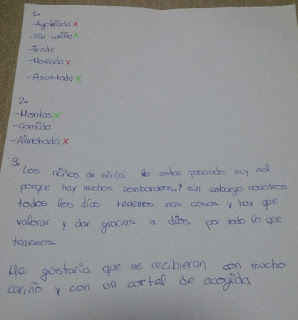 1.
-Agobiada x
-Sin cariño x
-triste
-Mareada x
-Asustada x
2.
-Mantas x
-Comida
-Almohada x
3. Los niños de siria lo estan pasando muy mal
porque hay muchos bombardeos. Y sin embargo nosotros
todos los días tenemos mas cosas y hay que
valorar y dar gracias a dios por todo lo que
tenemos.
Me gustaria que me recibieran con mucho
cariño y con un cartel de acogida